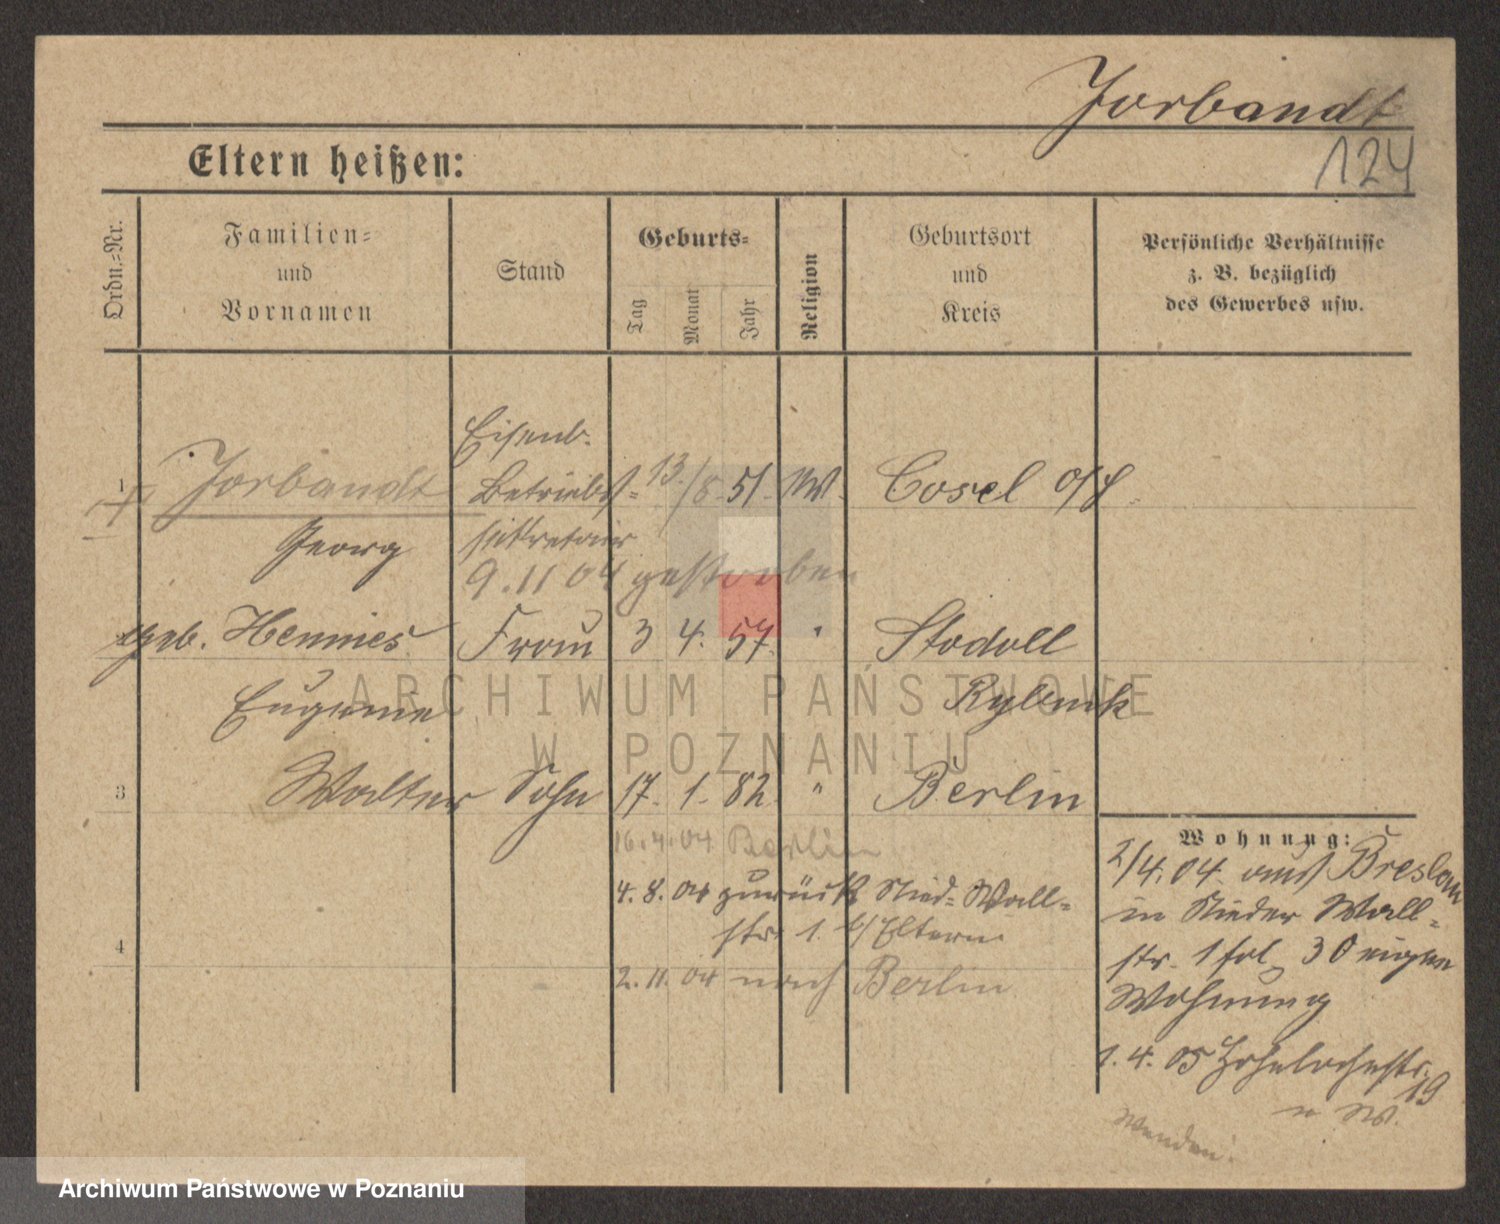 Jorbandt
124
Eltern heißen:
Ordn.-Nr.
Familien-
und
Vornamen
Stand
Geburts-
Tag
Monat
Jahr
Religion
Geburtsort
und
Kreis
Persönliche Verhältnisse
z. B. bezüglich
des Gewerbes usw.
1 Jorbandt
Georg
Eisenb.
Betriebs-
sekretair
13./8. 51. Cosel O/S
9.11 04 gestorben
geb. Hennies
Eugenie
Frau 3 4. 57. " Stodoll
Rybnik
3 Walter Sohn 17. 1. 82 " Berlin
16.4.04 Berlin
4. 8. 04 zurück Nied- Wall-
str. 1. b/ Eltern.
4
2. 11. 04 nach Berlin
Wohnung:
2/4. 04. aus Breslau
in Nieder Wall-
str. 1 3 eigene
Wohnung
1. 4. 05 19
Wenden!
ARCHIWUM PAŃSTWOWE
W POZNANIU
Archiwum Państwowe w Poznaniu